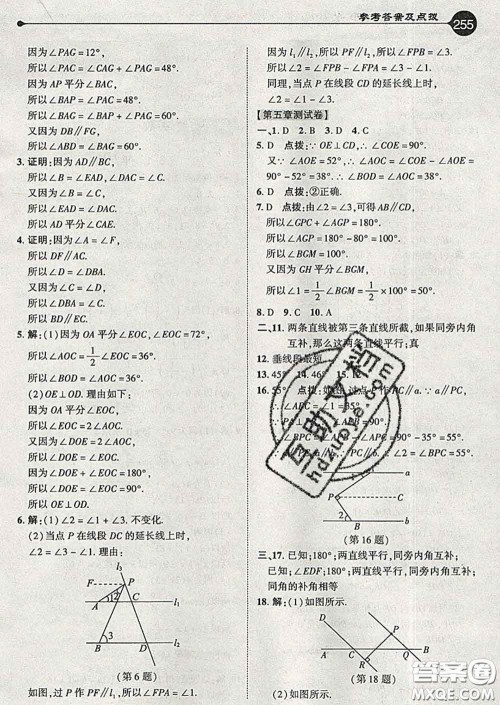 参考答案及点拨
255
因为∠PAG=12°，
所以∠PAC=∠CAG+∠PAG=48°.
因为AP平分∠BAC，
所以∠BAP=∠PAC=48°.
所以∠BAG=∠BAP+∠PAG=60°.
又因为DB∥FG，
所以∠ABD=∠BAG=60°.
3. 证明：因为AD∥BC，
所以∠B=∠EAD，∠C=∠DAC.
又因为∠B=∠C，
所以∠EAD=∠DAC.
4. 证明：因为∠A=∠F，
所以DF∥AC.
所以∠D=∠DBA.
又因为∠C=∠D，
所以∠C=∠DBA.
所以BD∥EC.
5. 解：(1)因为OA平分∠EOC，∠EOC=72°，
所以∠AOC=1/2∠EOC=36°.
所以∠BOD=∠AOC=36°.
(2)OE⊥OD. 理由如下：
因为OA平分∠EOC，
所以∠EOC=2∠AOC.
又因为∠AOC=∠BOD，
所以∠EOC=2∠BOD.
因为∠DOE=∠EOC，
又因为∠DOE+∠EOC=180°，
所以∠DOE+∠DOE=180°.
所以∠DOE=90°. 所以OE⊥OD.
6. 解：(1)∠2=∠1+∠3. 不变化.
(2)当点P在线段DC的延长线上时，
∠2=∠3-∠1. 理由：
F P
A 1 2 C l₁
B 3 D l₂
l₃
(第6题)
如图，过P作PF∥l₁，∠FPA=∠1.
因为l₁∥l₂，所以PF∥l₂，所以∠FPB=∠3.
所以∠2=∠FPB-∠FPA=∠3-∠1.
同理，当点P在线段CD的延长线上时，
∠2=∠1-∠3.
【第五章测试卷】
一、1. D 2. B 3. D 4. D
5. D 点拨：∵OE⊥CD，∴∠COE=90°.
又∵∠BOE=52°，∴∠AOD=∠BOC=
90°-52°=38°.
6. D 点拨：②正确.
7. D 点拨：由∠2=∠3，可得AB∥CD，
所以∠GPC+∠AGP=180°.
所以∠AGP=180°-80°=100°.
所以∠BGM=100°.
又因为GH平分∠BGM，
所以∠1=1/2∠BGM=1/2×100°=50°.
8. D 9. C 10. A
二、11. 两条直线被第三条直线所截，如果同旁内角
互补，那么这两条直线平行；真
12. 垂线段最短
16. 55° 点拨：如图，过点P作PC∥a.
=∠APC
∴∠BPC=∠APB-∠APC=90°-35°=55°.
∴∠2=∠BPC=55°.
a
P C
b
(第16题)
三、17. 已知；180°；两直线平行，同旁内角互补；
已知；∠EDF；180°；两直线平行，同旁内角互补；
同角的补角相等
18. 解：(1)如图所示.
P
A C R Q B
(第18题)
(2)如图所示.
互助文档
hdzuoye.com
答案圈
MXQE.COM